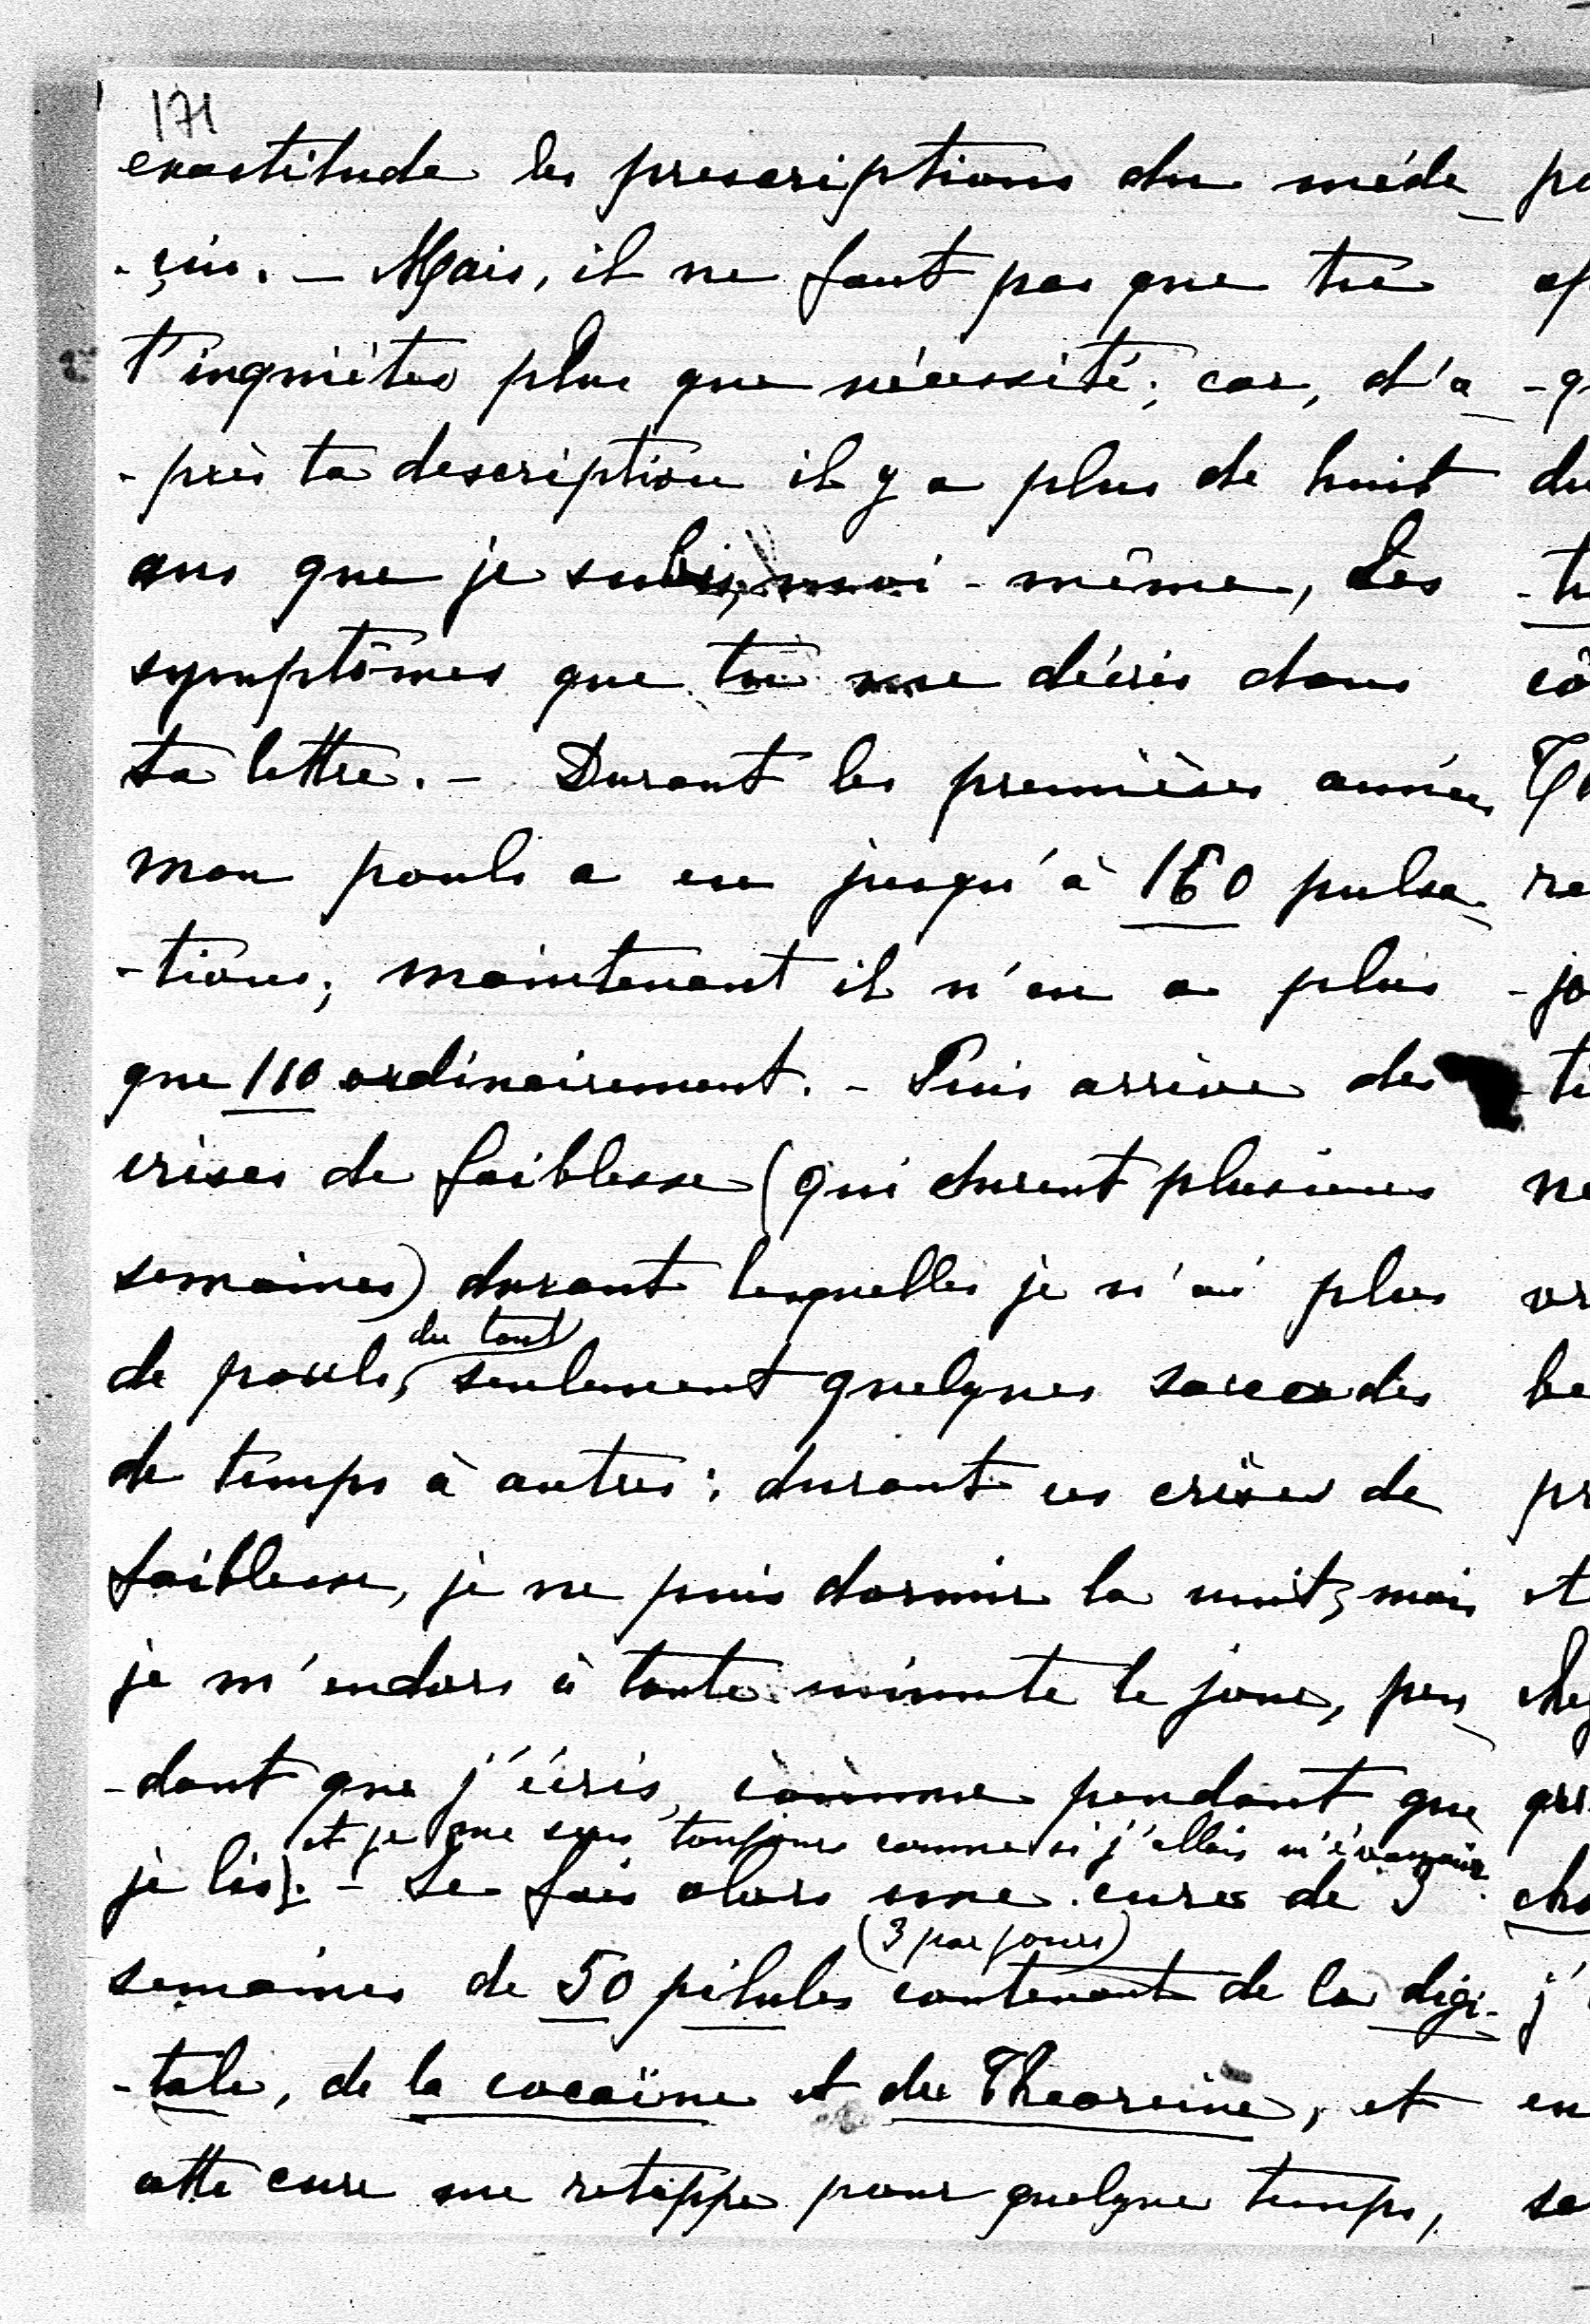 171
exactitude les prescriptions du méde_
-çin. - Mais, il ne faut pas que tu
t'inquiètes plus que nécessité; car, d'a_
-près ta description il y a plus de huit
ans que je subis, moi-même, les
symptômes que tu me décris dans
ta lettre. - Durant les premières années
mon pouls a eu jusqu'à 160 pulsa_
-tions; maintenant il n'en a plus
que 110 ordinairement. - Puis arrive des
crises de faiblesse (qui durent plusieurs
semaines) durant lesquelles je n'ai plus
du tout
de pouls, seulement quelques saccades
de temps à autres: durant ces crises de
faiblesse, je ne puis dormir la nuit, mais
je m'endors à toute minute le jour, pen_
-dant que j'écris, comme pendant que
et je me sens toujours comme si j'allais m'évanouir.
je lis). - Je fais alors une cure de 3
(3 par jours)
semaines de 50 pilules contenant de la digi-
-tale, de la cocaïne et du, et
cette cure me retappe pour quelque temps,